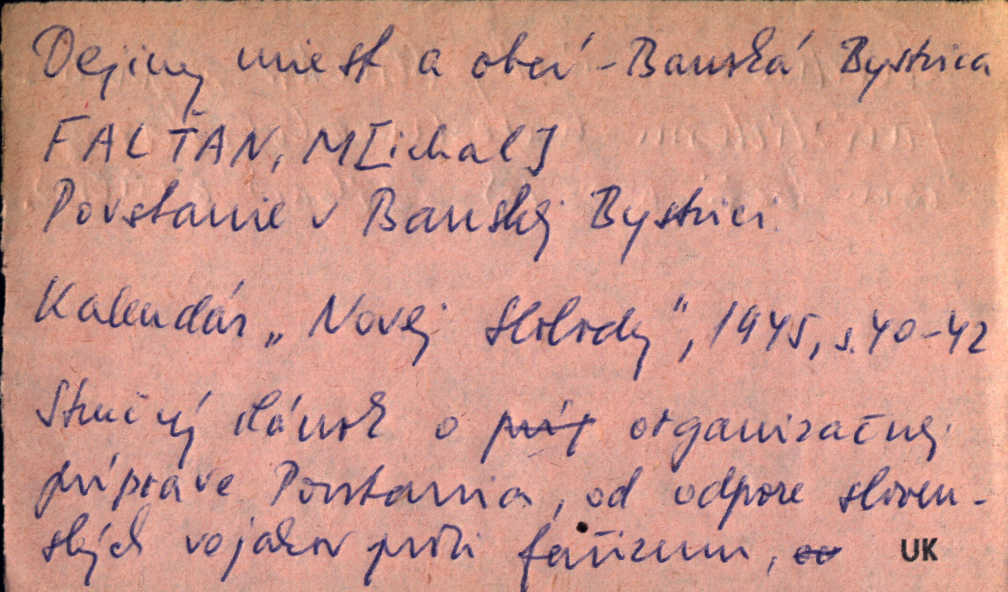 Dejiny miest a obcí - Banská Bystrica
FALŤAN, M[ichal]
Povstanie v Banskej Bystrici.
Kalendár „Novej Slobody", 1945, s. 40-42
Stručný článok o príp organizačnej
príprave Povstania, od odpore sloven-
ských vojakov proti fašizmu, UK